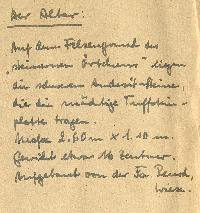 Der Altar:
Auf dem Felsengrund des
"steinernen Örtchens" liegen
die schweren Andesit-Steine,
die die mächtige Tuffstein-
platte tragen.
Maße 2.60 m x 1.10 m.
Gewicht etwa 16 Zentner.
Aufgebaut von der Fa.